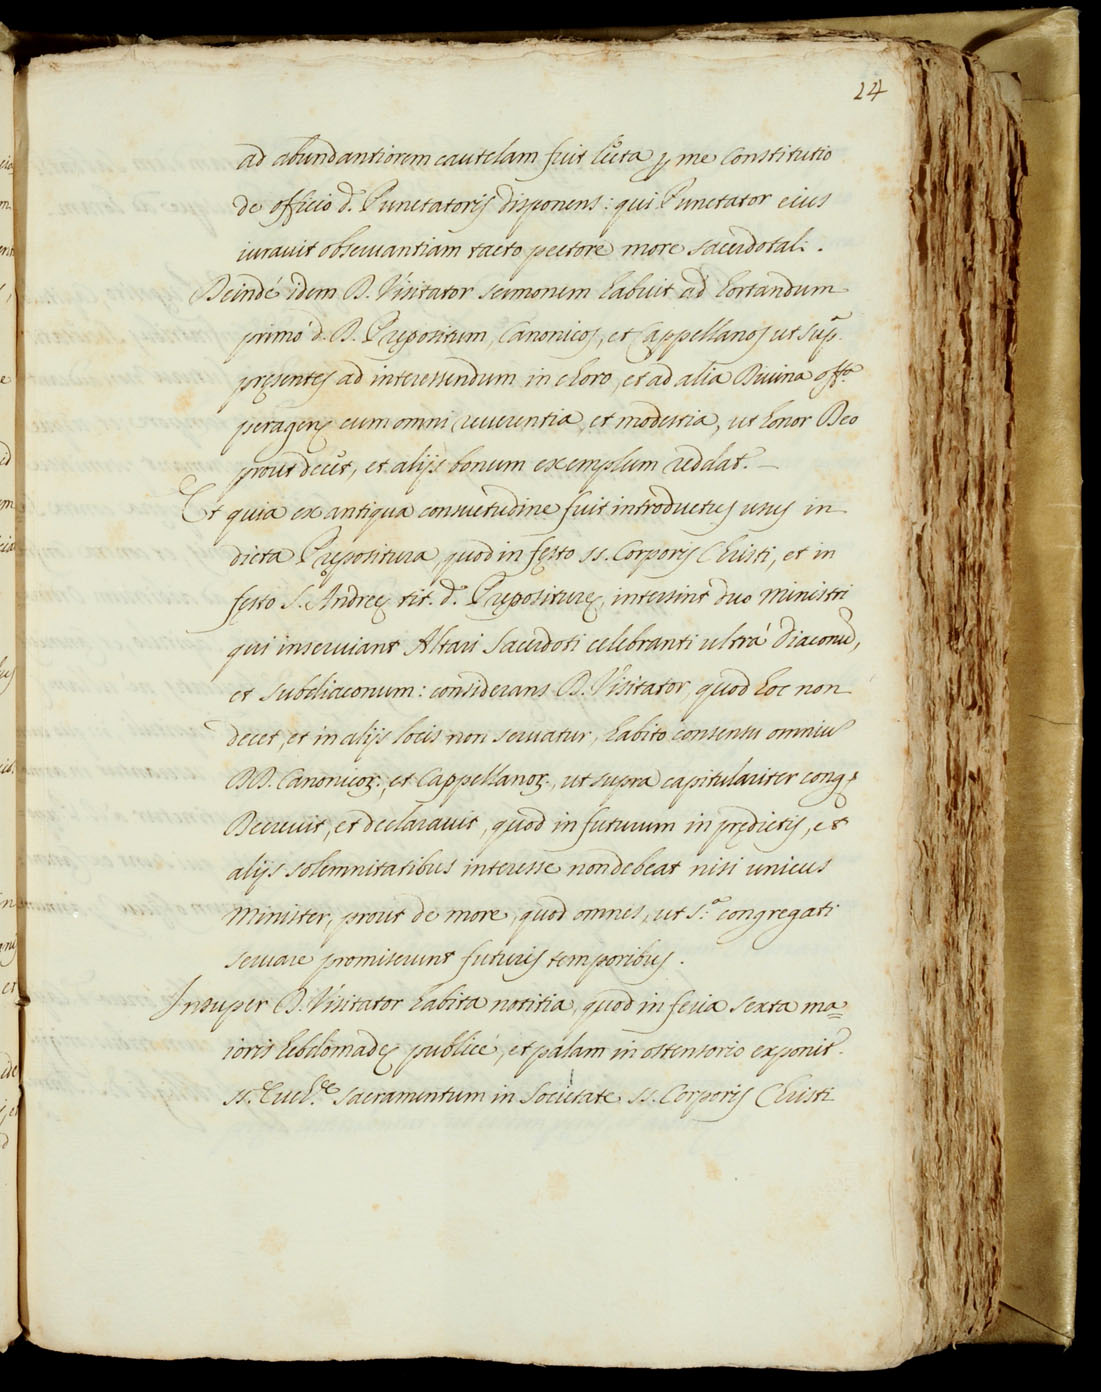 24
ad abundantiorem cautelam fuit lecta p me Constitutio
de officio d. Punctatoris disponens: qui Punctator eius
iurauit obseruantiam tacto pectore more sacerdotali.
Deindé idem D. Visitator sermonem habuit ad hortandum
primo d. D. Prepositum, Canonicos, et Cappellanos ut sup.
pręsentes ad interessendum in choro, et ad alia Diuina offa
peragenˀ cum omni reuerentia, et modestia, ut honor Deo
prout decet, et alijs bonum exemplum reddat. —
Et quia ex antiqua consuetudine fuit introductus usus in
dicta Prepositura, quod in festo ss. Corporis Christi, et in
festo S. Andreę tit. d. Preposituręˏ intersint duo ministri
qui inseruiant Altari Sacerdoti celebranti ultrá diaconū,
et subdiaconum: considerans D. Visitator, quod hoc non
decet, et in alijs locis non seruatur, habito consensu omniū
DD. Canonicoꝝ, et Cappellanoꝝ, ut supra capitulariter cong.
Decreuit, et declarauit, quod in futurum in prędictis, et
alijs solemnitatibus interesse non debeat nisi unicus
Minister, prout de more, quod omnes, ut s.a congregati
seruare promiserunt futuris temporibus.
Insuper D. Visitator habita notitia, quod in feria sexta ma=
ioris hebdomadę publicé, et palam in ostensorio exponit.
ss. Euch.ę sacramentum in Societate ss. Corporis Christi